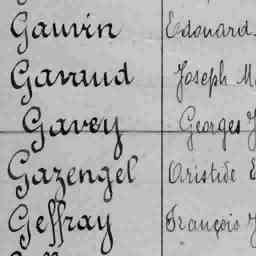 Gauvin Edouard
Gavaud Joseph
Gavey Georges
Gazengel Aristide
Geffray François